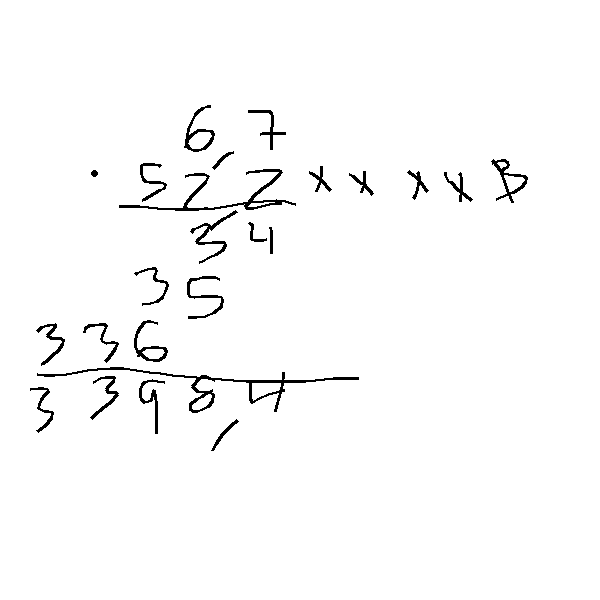 6,7
· 52,2 x x x x B
3 4
3 5
3 3 6
3 3 9 8,4